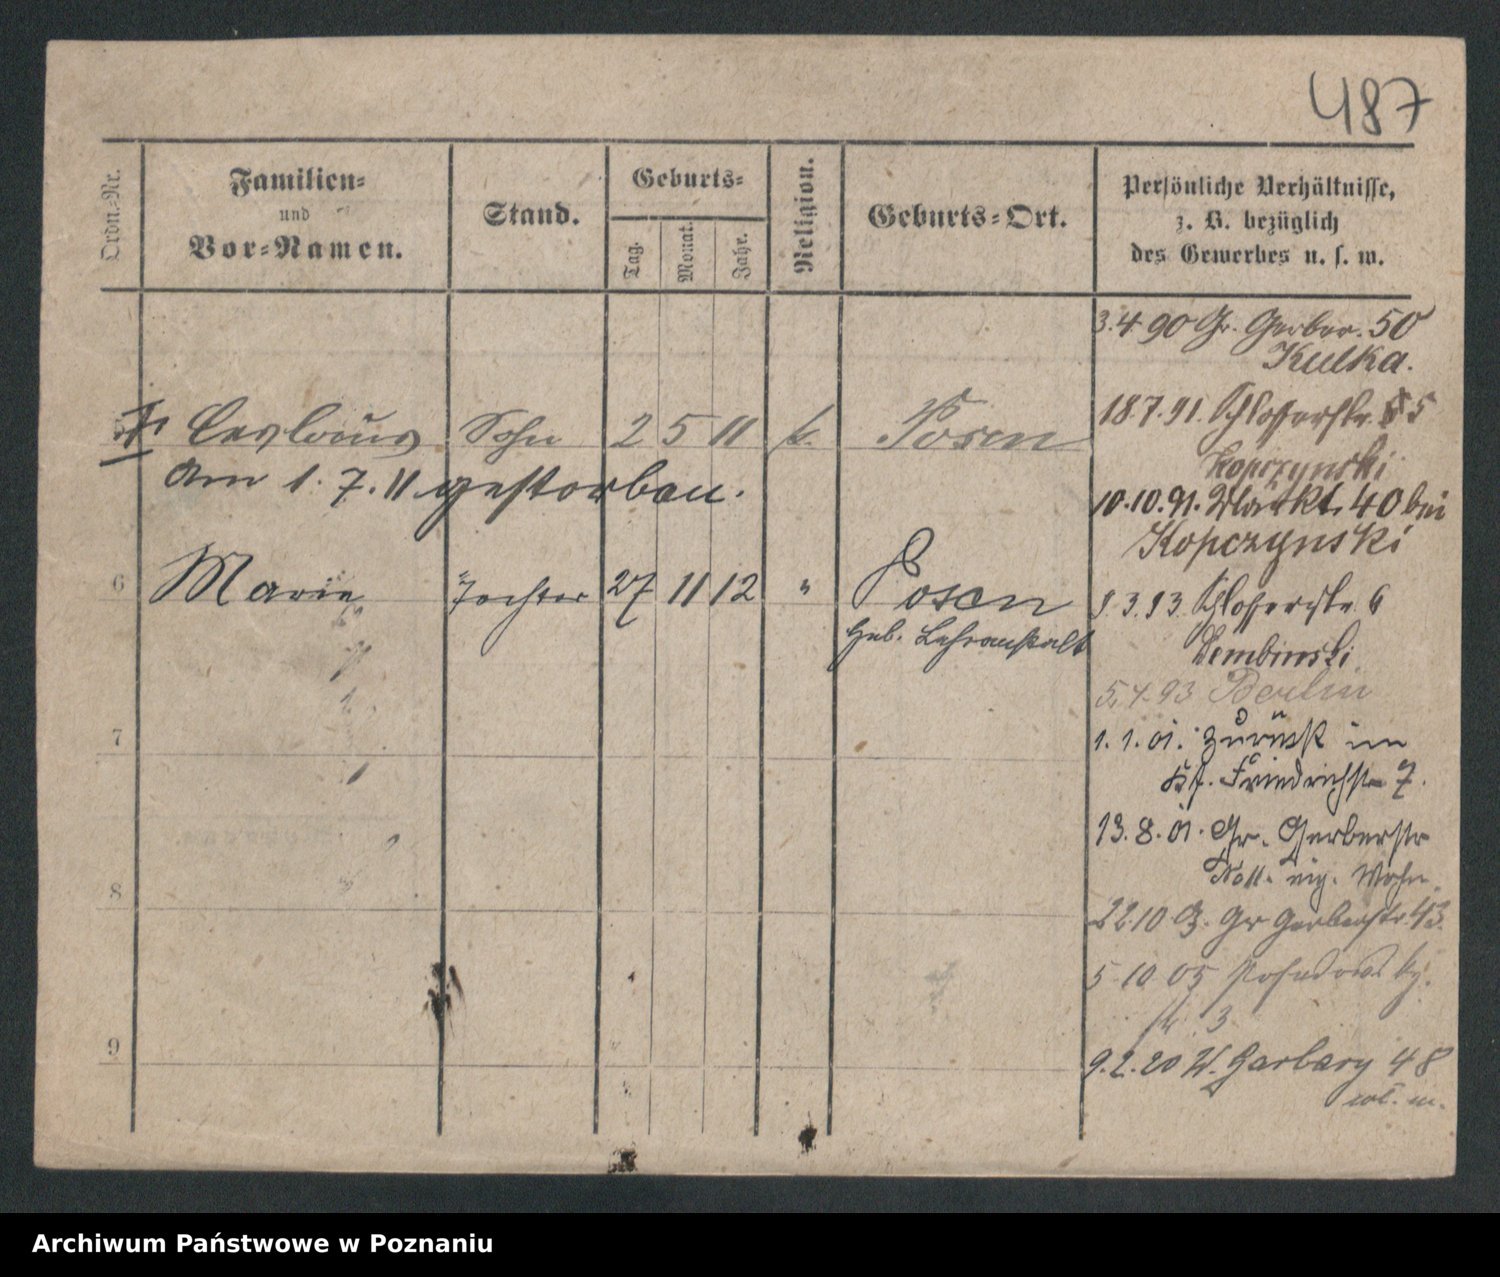 487
Ordn.-Nr.
Familien-
und
Vor-Namen.
Stand.
Geburts-
Tag.
Monat.
Jahr.
Religion.
Geburts-Ort.
Persönliche Verhältnisse,
z. B. bezüglich
des Gewerbes u. s. w.
3.4 90 Gr. Gerber. 50
Kulka.
Sohn 2 5 11 k. Posen
am 1. 7. 11 gestorben.
18.7.91. Schlosserstr. 5
Kopczynski
10.10.91. Markt. 40 bei
Kopczynski
6 Marie Tochter 27 11 12 " Posen
Heb. Lehranstalt
3.93 Schlosserstr. 6
Dembinski
5.4.93 Berlin
7
1. 1. 01. zurück in
Friedrichstr 7.
13. 8. 01. Gr. Gerberstr
eig. Wohn.
8
22.10 Gr Gerberstr. 43.
5.10.05
3
9
9.2.20 W. Garbary 48
wł. m.
Archiwum Państwowe w Poznaniu